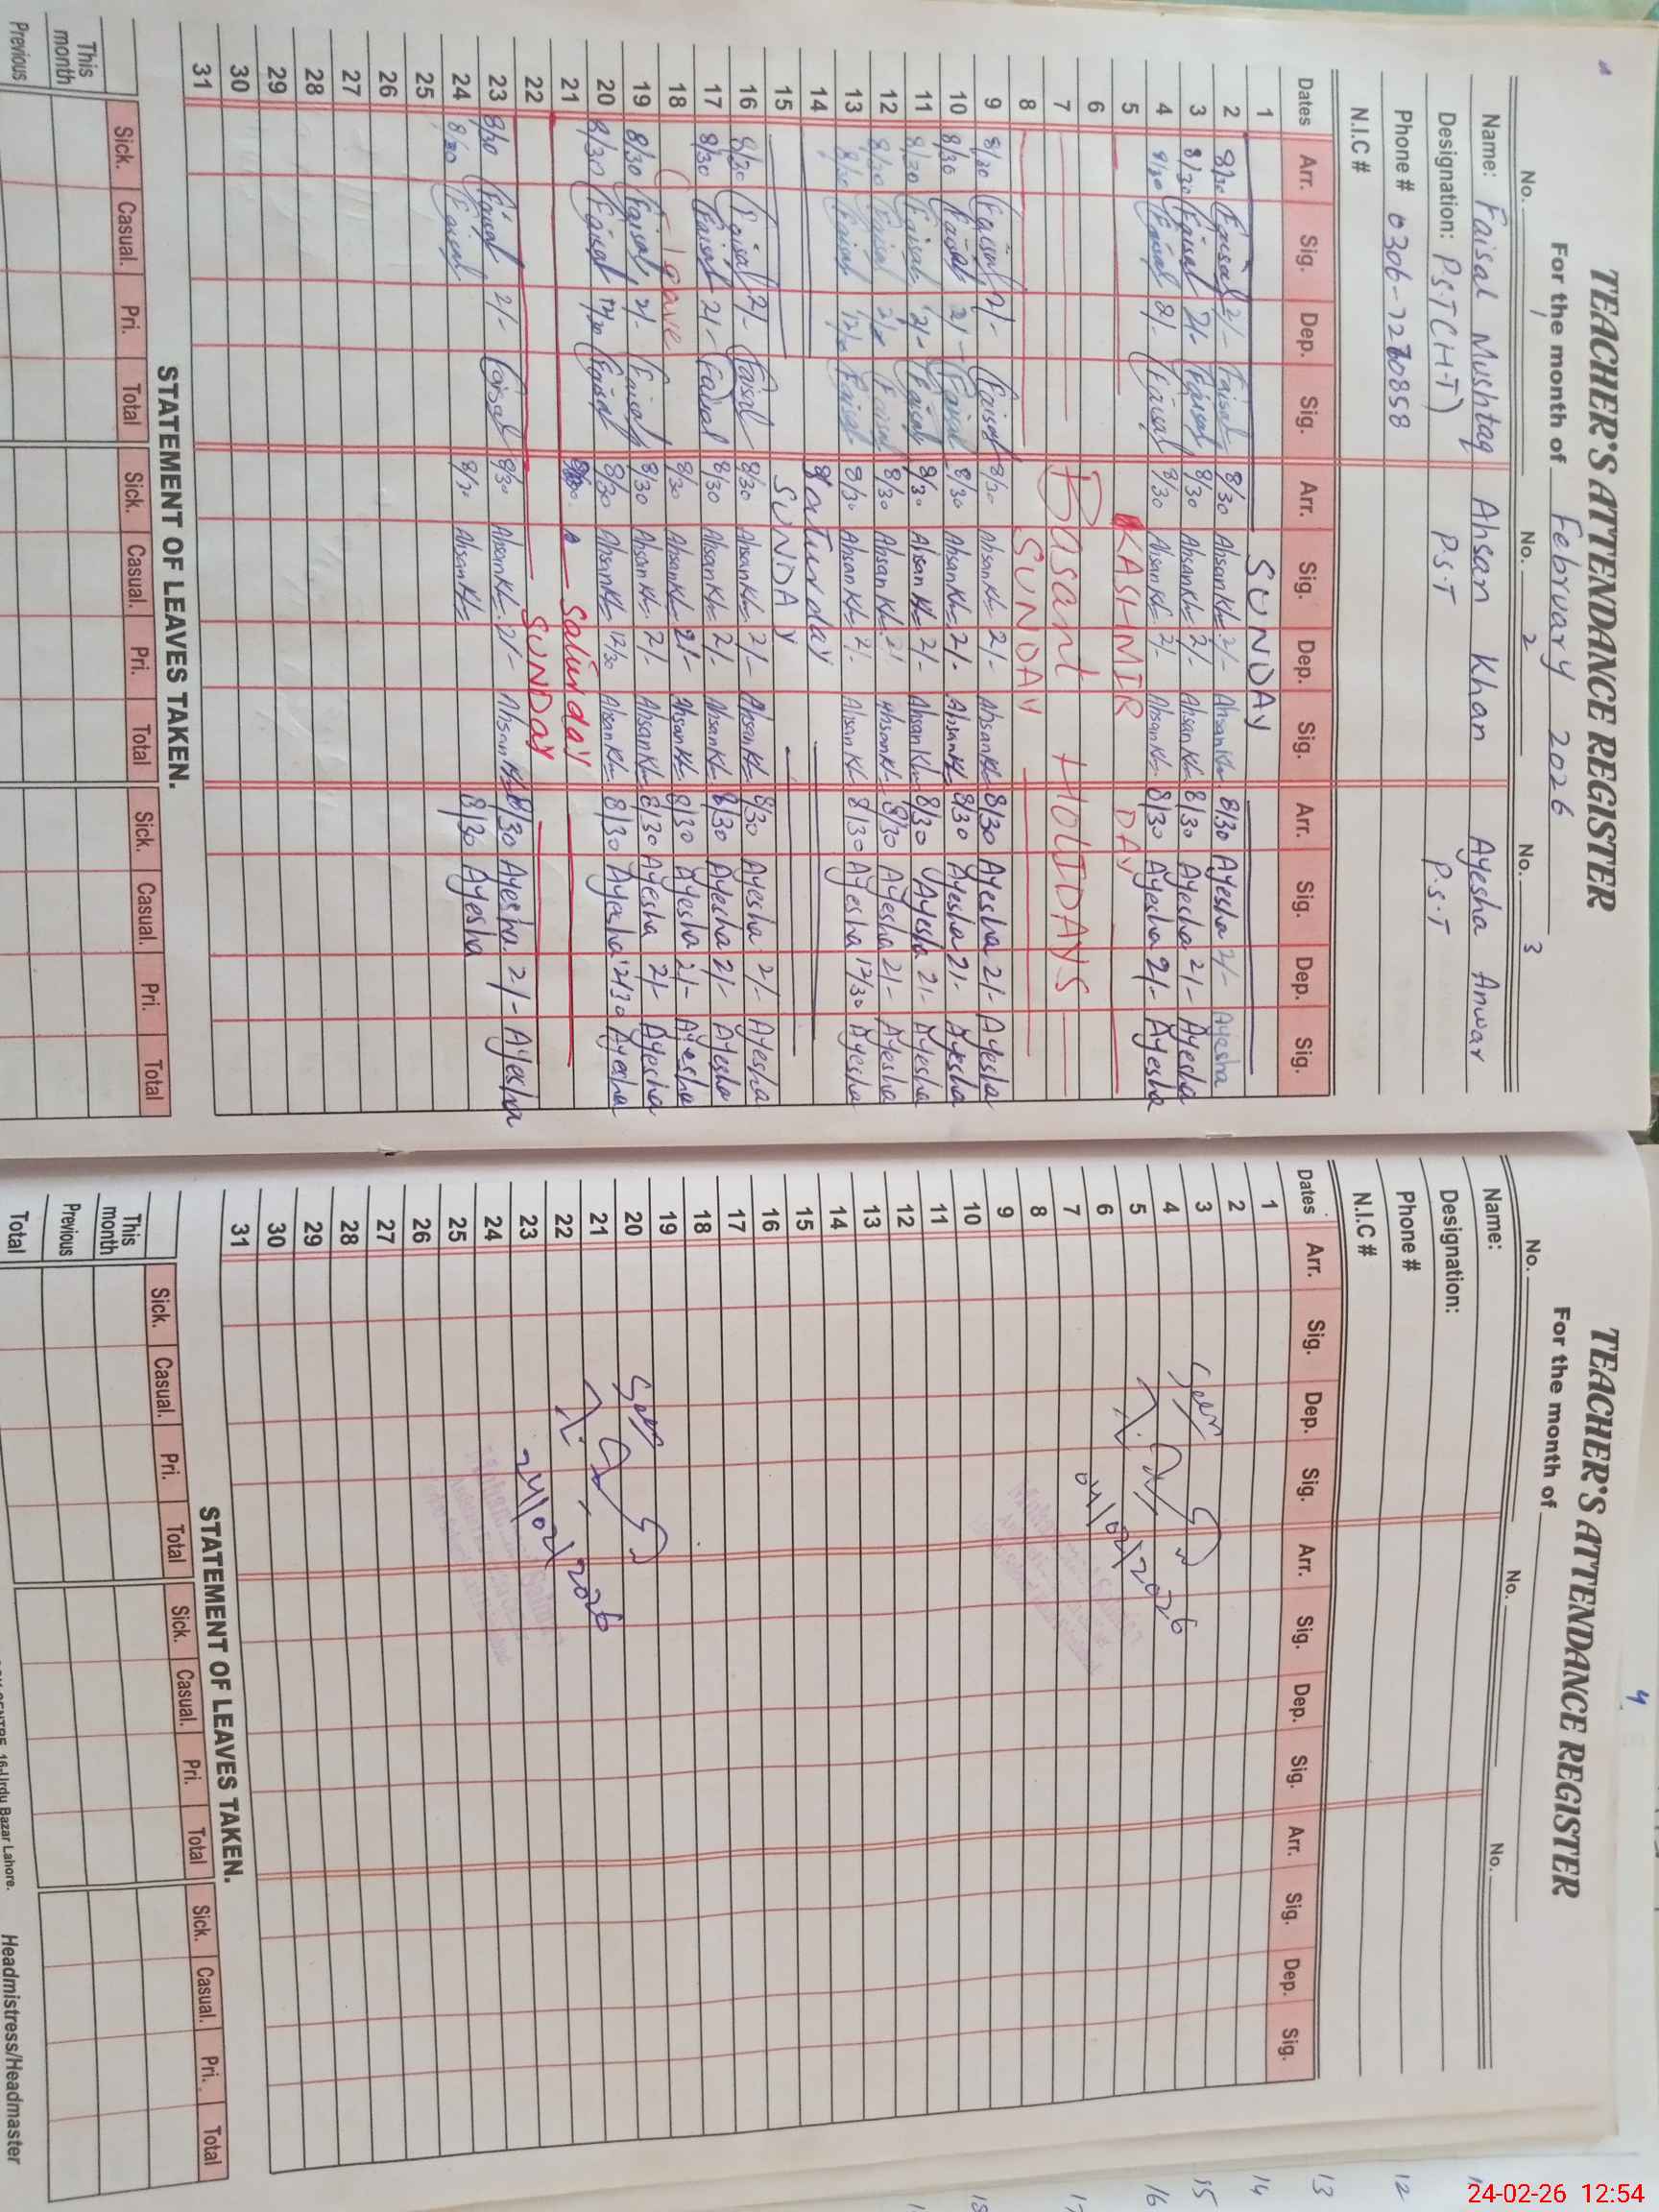 TEACHER'S ATTENDANCE REGISTER
For the month of February 2026
No. 1 No. 2 No. 3
Name: Faisal Mushtaq Ahsan Khan Ayesha Anwar
Designation: P.S.T (H.T) P.S.T P.S.T
Phone # 0306-7270858
N.I.C #
Dates Arr. Sig. Dep. Sig. Arr. Sig. Dep. Sig. Arr. Sig. Dep. Sig.
1 SUNDAY
2 8/30 Faisal 2/- Faisal 8/30 AhsanKh 2/- AhsanKh 8/30 Ayesha 2/- Ayesha
3 8/30 Faisal 2/- Faisal 8/30 AhsanKh 2/- AhsanKh 8/30 Ayesha 2/- Ayesha
4 8/30 Faisal Faisal 8/30 AhsanKh 2/- AhsanKh 8/30 Ayesha 2/- Ayesha
5 KASHMIR DAY
6
7 Basant HOLIDAYS
8 SUNDAY
9 8/30 Faisal 2/- Faisal 8/30 AhsanKh 2/- AhsanKh 8/30 Ayesha 2/- Ayesha
10 8/30 Faisal 2/- Faisal 8/30 AhsanKh 2/- AhsanKh 8/30 Ayesha 2/- Ayesha
11 8/30 Faisal 2/- Faisal 8/30 AhsanKh 2/- AhsanKh 8/30 Ayesha 2/- Ayesha
12 8/30 Faisal 2/- Faisal 8/30 AhsanKh 2/- AhsanKh 8/30 Ayesha 2/- Ayesha
13 8/30 Faisal 12/30 Faisal 8/30 AhsanKh 2/- AhsanKh 8/30 Ayesha 12/30 Ayesha
14 Saturday
15 SUNDAY
16 8/30 Faisal 2/- Faisal 8/30 AhsanKh 2/- AhsanKh 8/30 Ayesha 2/- Ayesha
17 8/30 Faisal 2/- Faisal 8/30 AhsanKh 2/- AhsanKh 8/30 Ayesha 2/- Ayesha
18 C-leave 8/30 AhsanKh 2/- AhsanKh 8/30 Ayesha 2/- Ayesha
19 8/30 Faisal 2/- Faisal 8/30 AhsanKh 2/- AhsanKh 8/30 Ayesha 2/- Ayesha
20 8/30 Faisal 12/30 Faisal 8/30 AhsanKh 12/30 AhsanKh 8/30 Ayesha 12/30 Ayesha
21 Saturday
22 SUNDAY
23 8/30 Faisal 2/- Faisal 8/30 AhsanKh 2/- AhsanKh 8/30 Ayesha 2/- Ayesha
24 8/30 Faisal 8/30 AhsanKh 8/30 Ayesha
25
26
27
28
29
30
31
STATEMENT OF LEAVES TAKEN.
Sick. Casual. Pri. Total Sick. Casual. Pri. Total Sick. Casual. Pri. Total
This month
Previous
4
TEACHER'S ATTENDANCE REGISTER
For the month of
No. No. No.
Name:
Designation:
Phone #
N.I.C #
Dates Arr. Sig. Dep. Sig. Arr. Sig. Dep. Sig. Arr. Sig. Dep. Sig.
1
2
3
4
5
6
7
8
9
10
11
12
13
14
15
16
17
18
19
20
21
22
23
24
25
26
27
28
29
30
31
04/02/2026
24/02/2026
STATEMENT OF LEAVES TAKEN.
Sick. Casual. Pri. Total Sick. Casual. Pri. Total Sick. Casual. Pri. Total
This month
Previous
Total
16-Urdu Bazar Lahore.
Headmistress/Headmaster
12
13
14
15
16
24-02-26 12:54